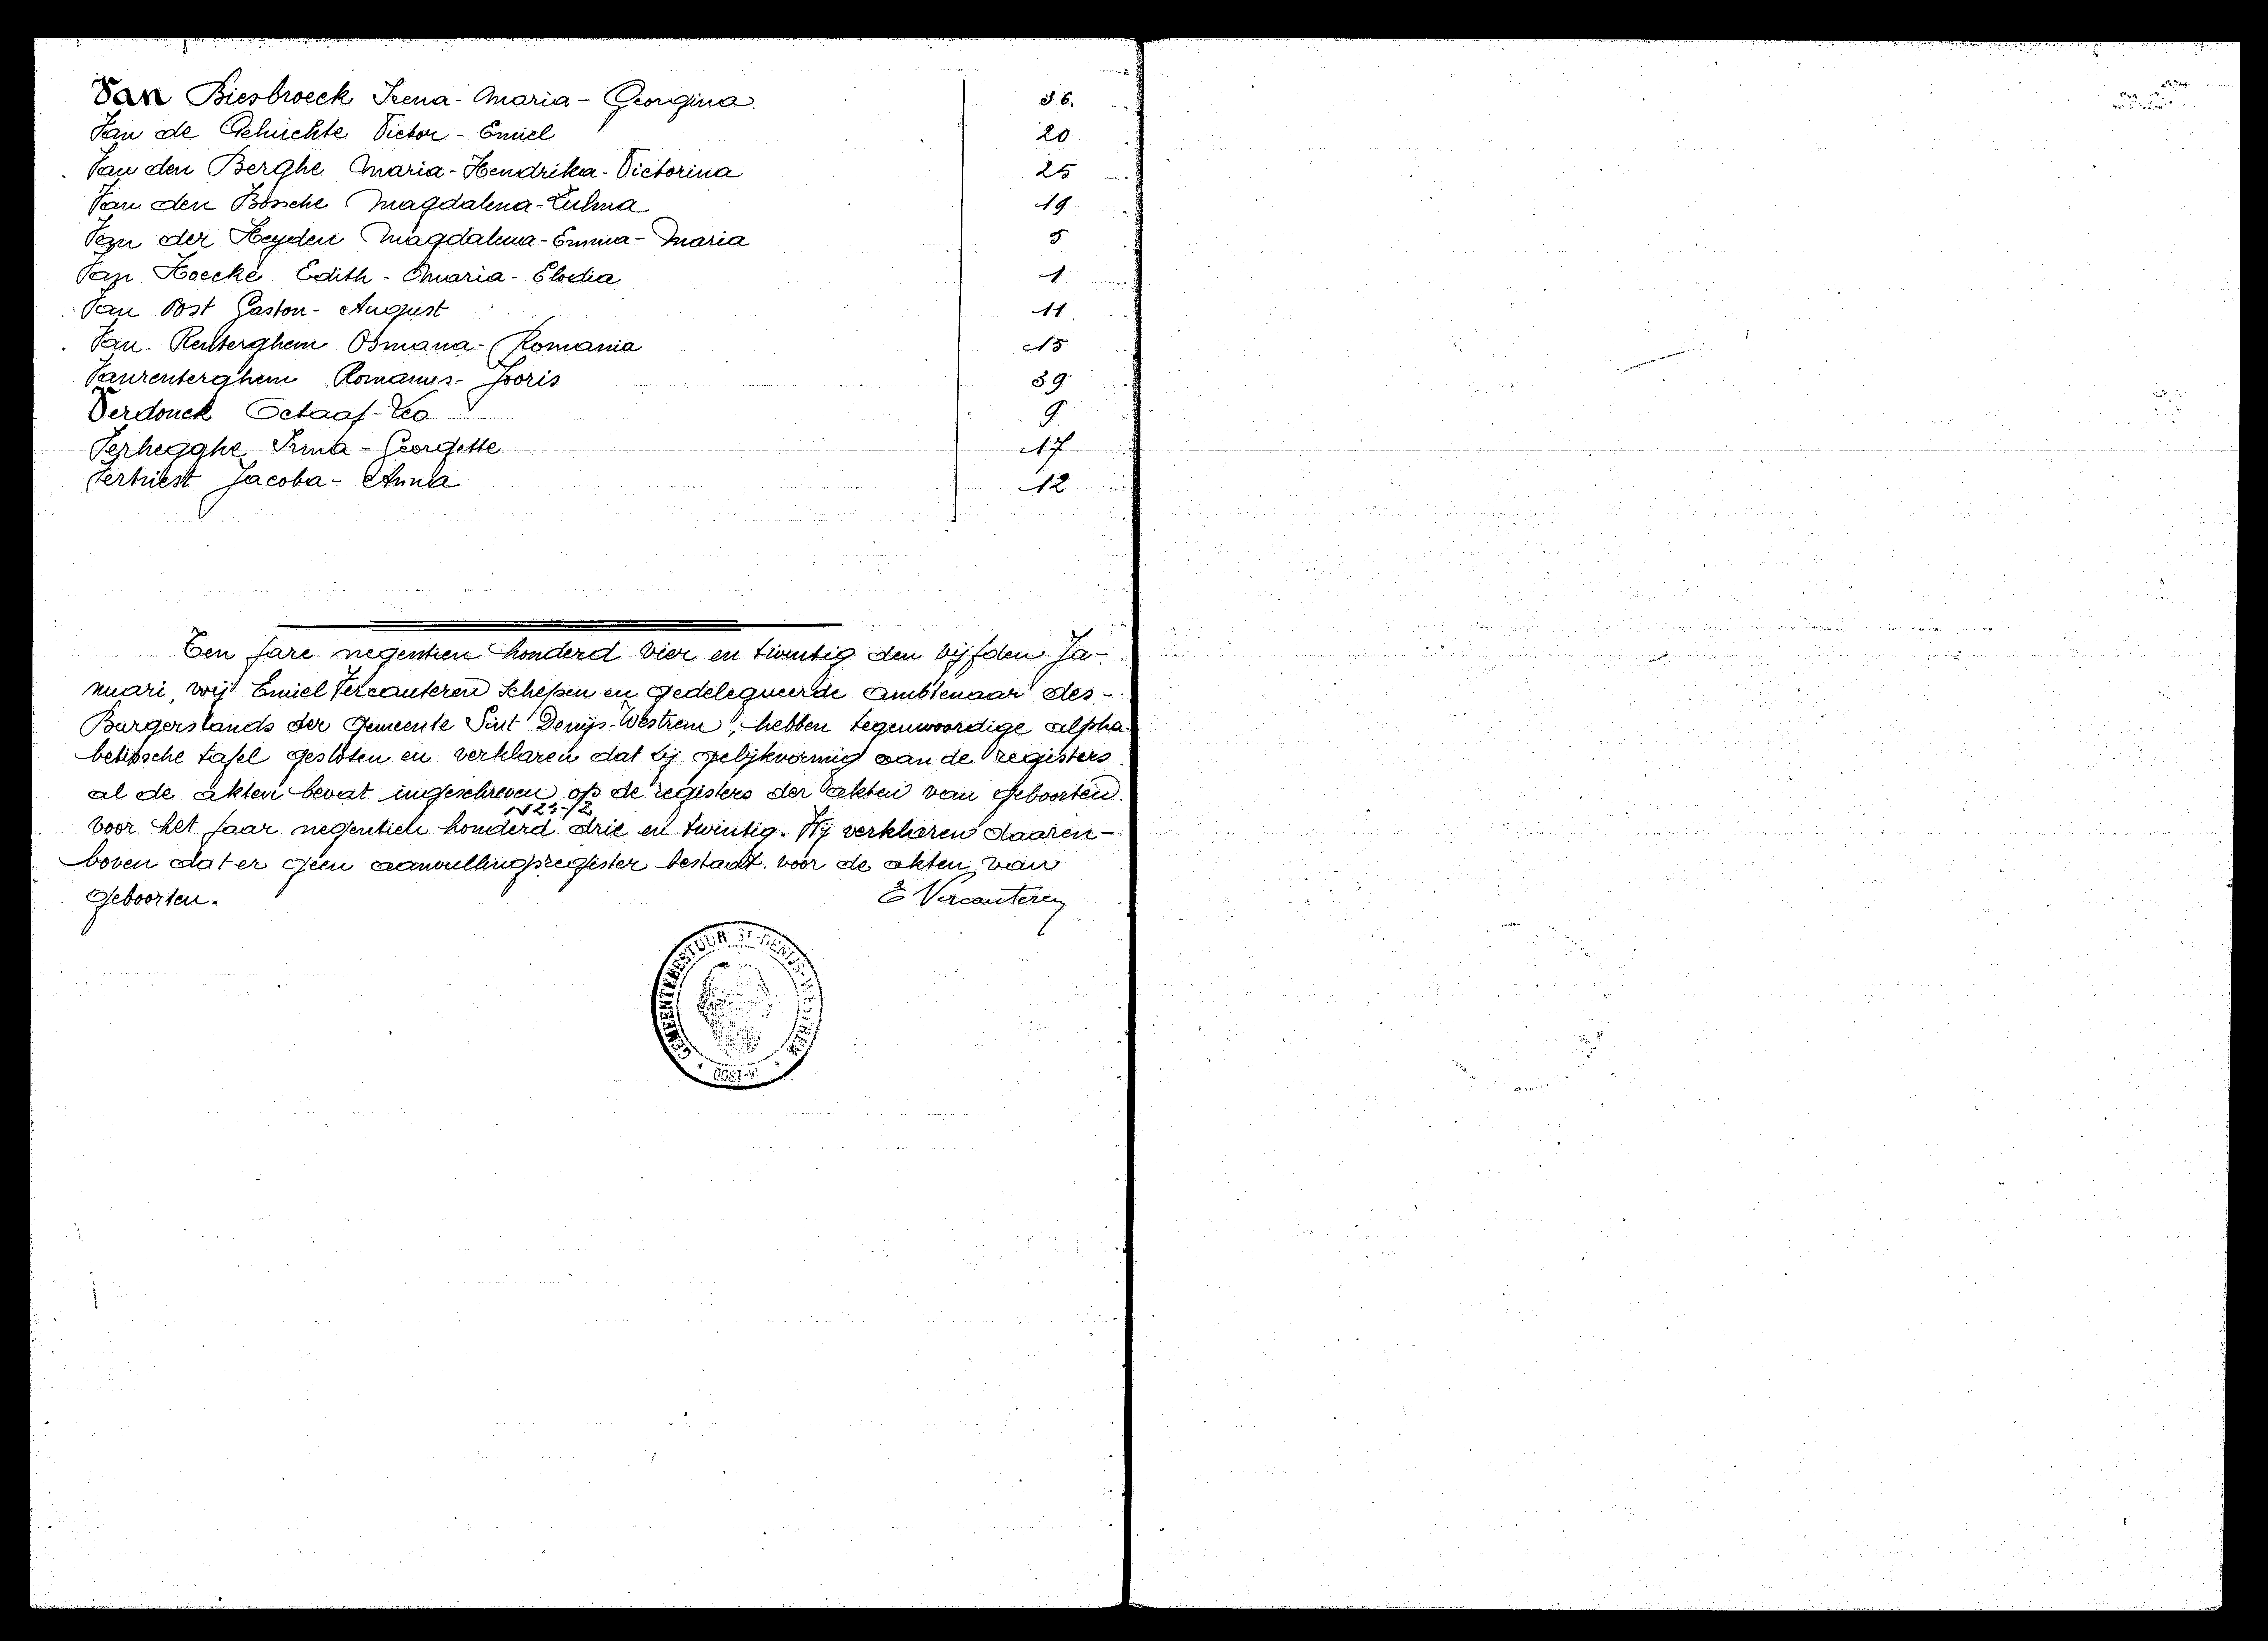 Van Biesbroeck Irena - Maria - Georgina. 36.
Van de Gehuchte Victor - Emiel 20
Van den Berghe Maria - Hendrika - Victorina 25
Van den Bossche Magdalena - Zulma 19
Van der Heyden Magdalena - Emma - Maria 5
Van Hoecke Edith - Maria - Elodia 1
Van Ost Gaston - August 11
Van Renterghem Osmana - Romania 15
Vanrenterghem Romanus - Jooris 39
Verdonck Octaaf - Leo 9
Verhegghe Irma - Georgette 17
Vertriest Jacoba - Anna 12
Ten jare negentien honderd vier en twintig den vijfden Ja-
nuari, wij Emiel Vercauteren Schepen en gedelegueerde ambtenaar des -
Burgerstands der Gemeente Sint Denijs-Westrem, hebben tegenwoordige alpha-
betische tafel gesloten en verklaren dat zij gelijkvormig aan de registers
al de akten bevat ingeschreven op de registers der akten van geboorten
voor het jaar negentien honderd drie en twintig. Wij verklaren daaren-
boven dat er geen aanvullingsregister bestaat voor de akten van
Geboorten.
E Vercauteren
GEMEENTEBESTUUR ST-DENIJS-WESTREM
* OOST-V. *